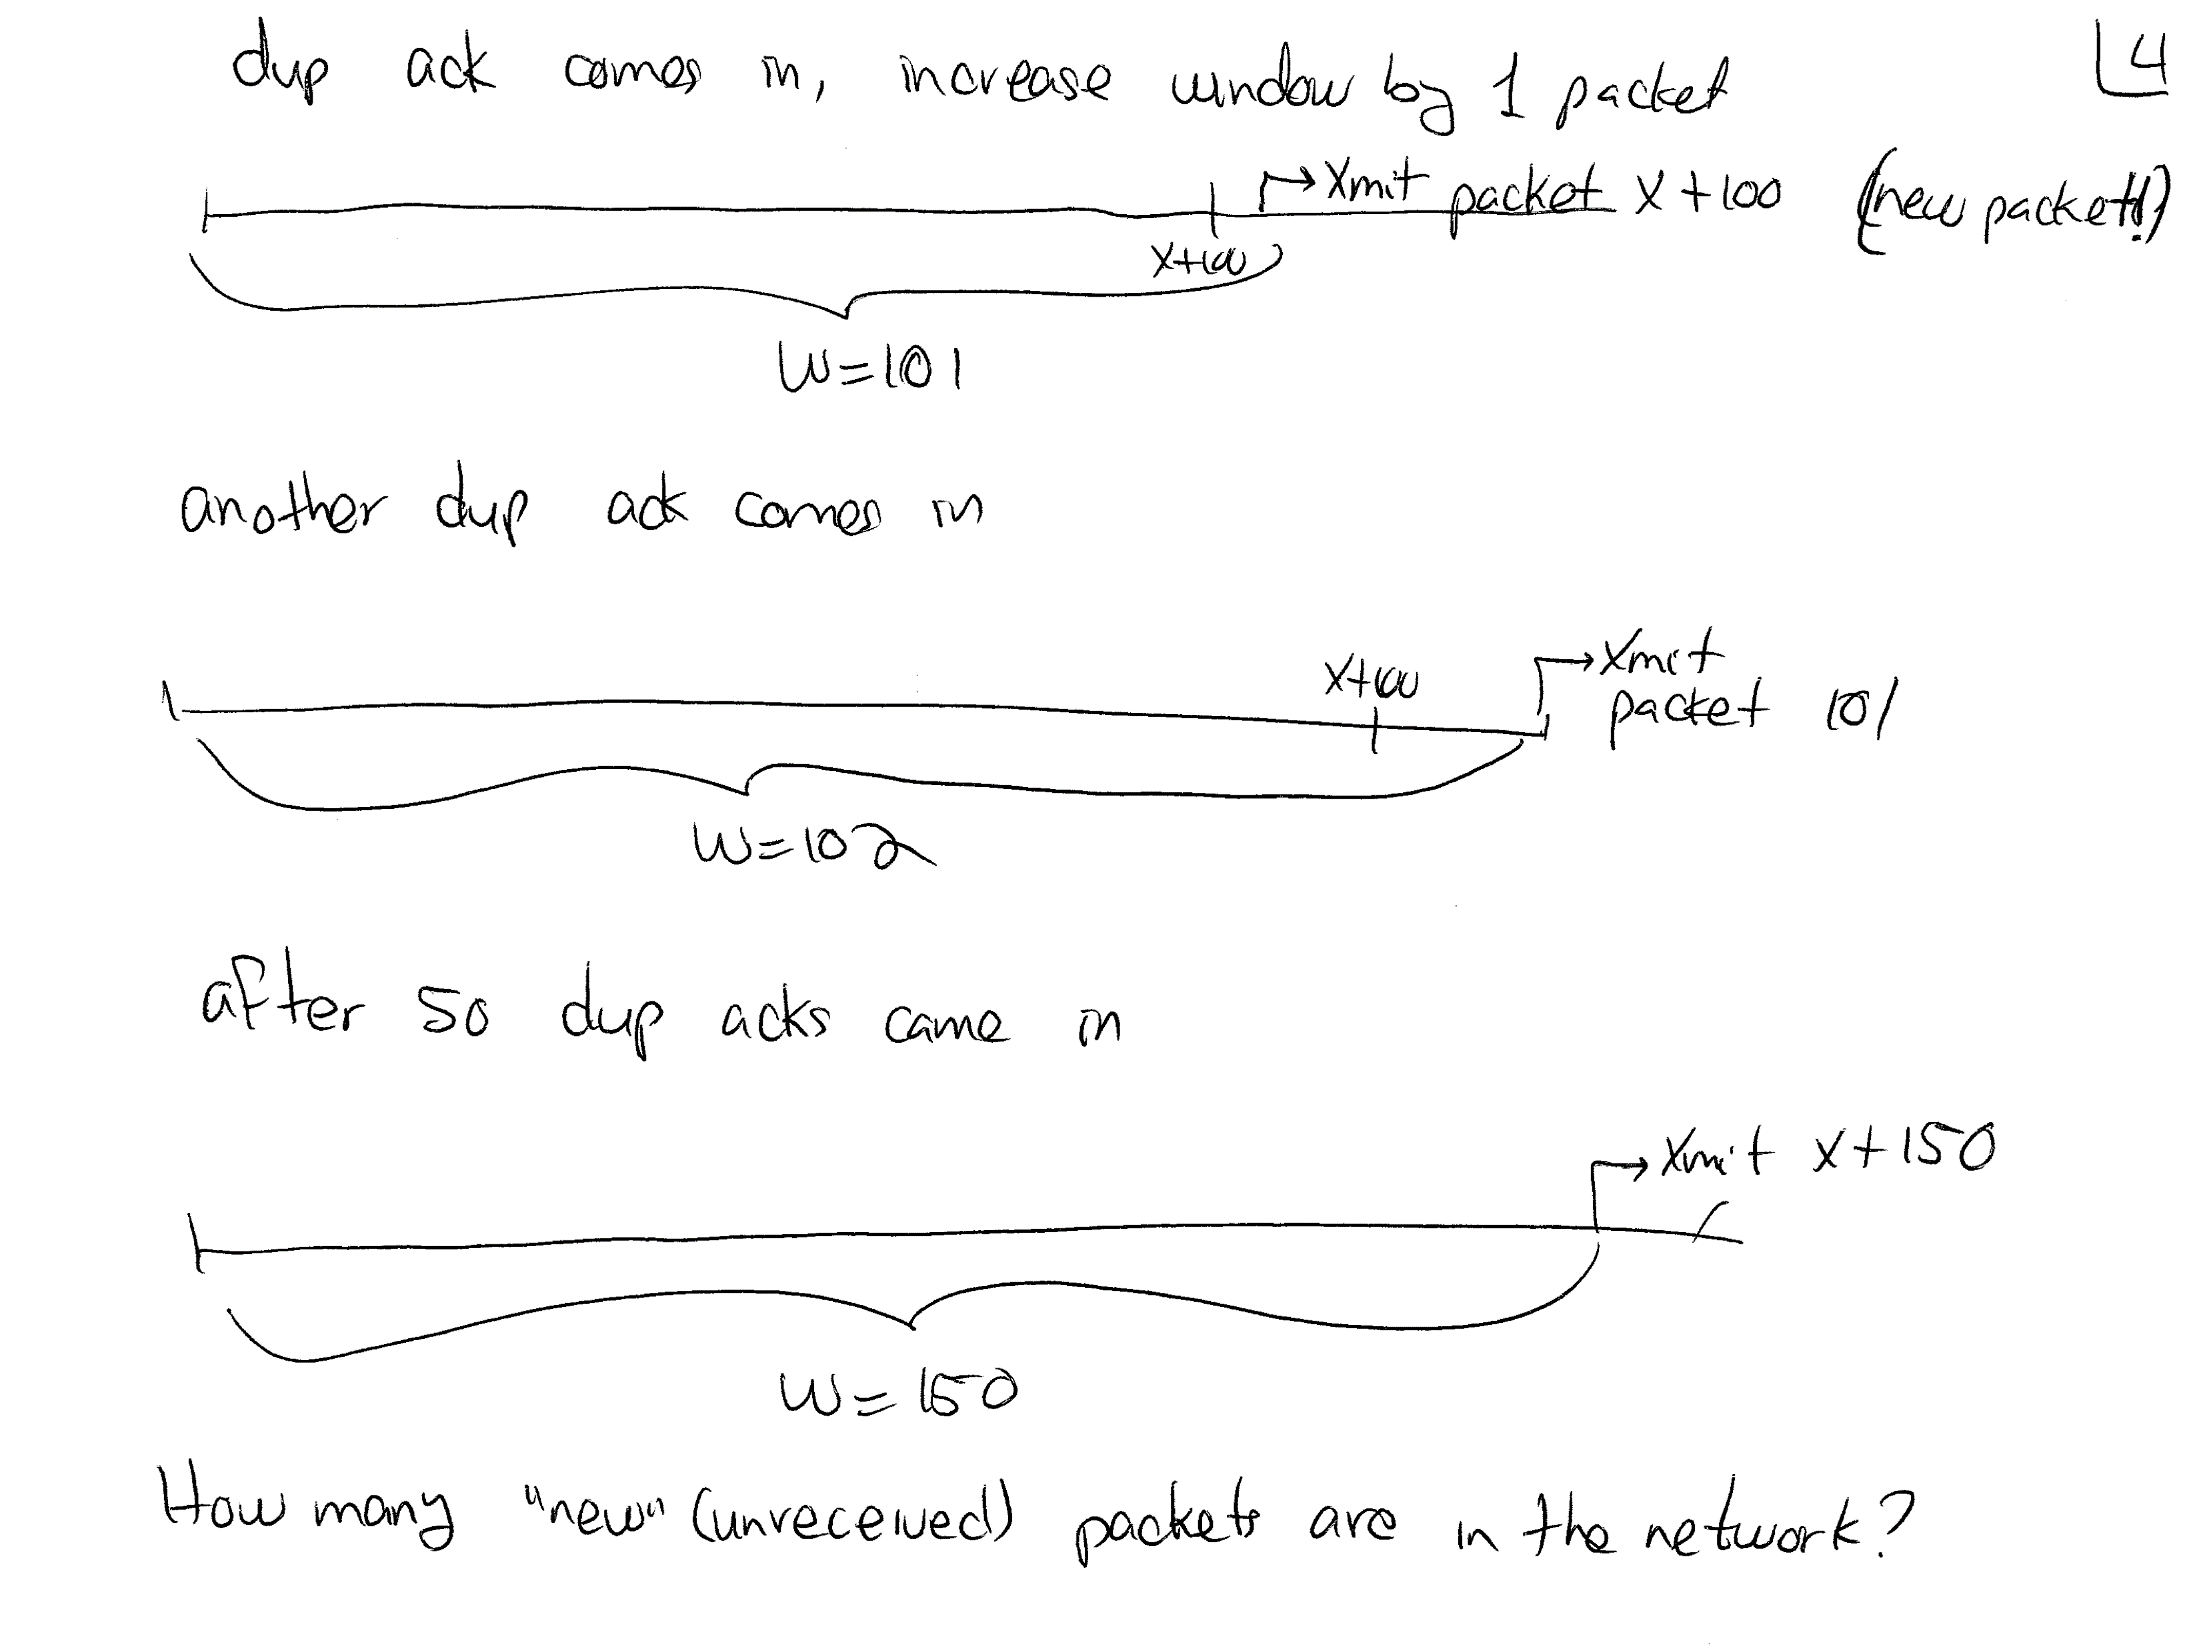 dup ack comes in, increase window by 1 packet
4
Xmit packet X+100 (new packet!!)
X+100
W=101
another dup ack comes in
X+100
Xmit
packet 101
W=102
after 50 dup acks came in
Xmit X+150
W=150
How many "new" (unreceived) packets are in the network?